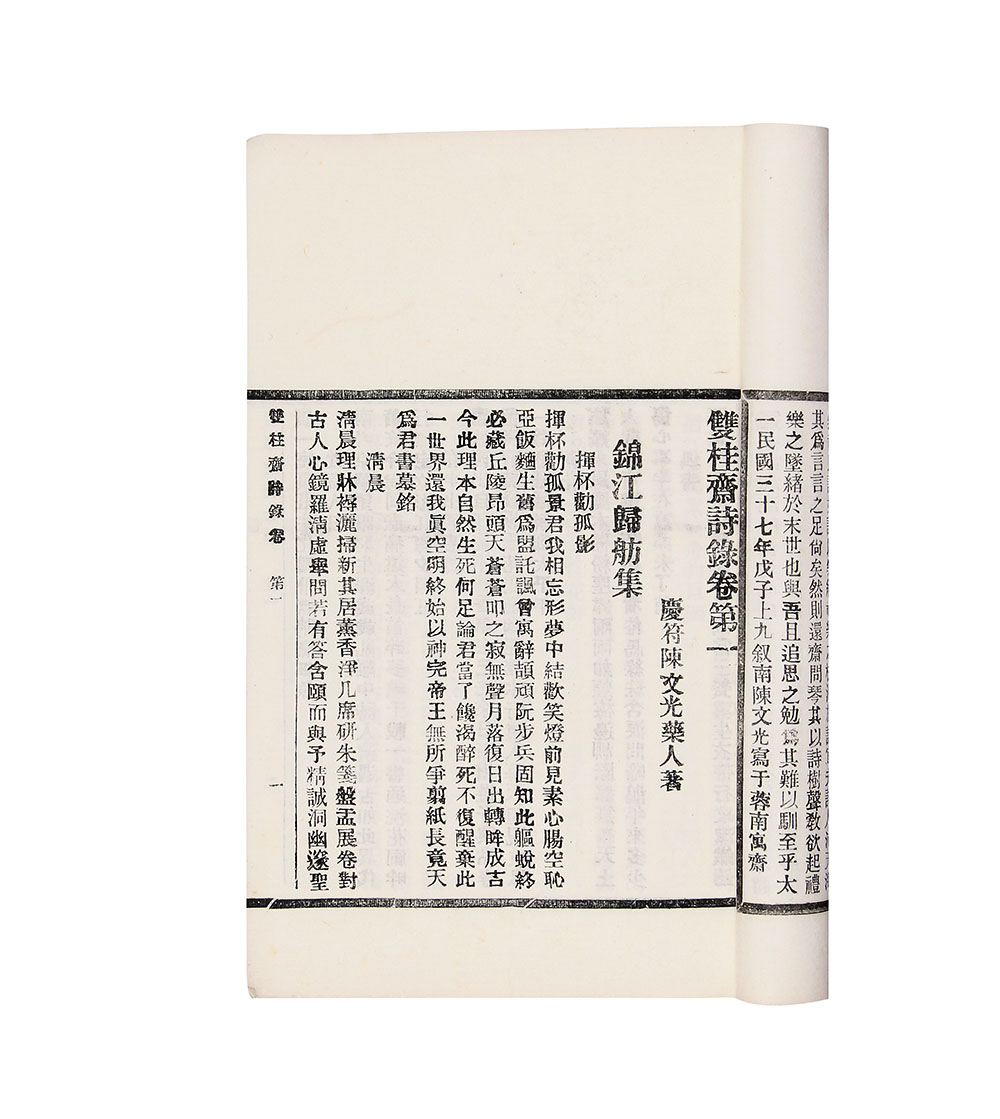 其爲言言之足尙矣然則還齋問琴其以詩樹聲敎欲起禮
樂之墜緒於末世也與吾且追思之勉爲其難以馴至乎太
一民國三十七年戊子上九叙南陳文光寫于蓉南寓齋
雙桂齋詩錄卷第一
慶符陳文光藥人著
錦江歸舫集
揮杯勸孤影
揮杯勸孤景君我相忘形夢中結歡笑燈前見素心腸空恥
亞飯麵生舊爲盟託諷曾寓辭頡頏阮步兵固知此軀蛻終
必藏丘陵昂頭天蒼蒼叩之寂無聲月落復日出轉眸成古
今此理本自然生死何足論君當了饑渴醉死不復醒棄此
一世界還我眞空明終始以神完帝王無所爭剪紙長竟天
爲君書墓銘
淸晨
淸晨理牀褥灑掃新其居薰香淨几席研朱箋盤盂展卷對
古人心鏡羅淸虛舉問若有答含頤而與予精誠洞幽邃聖
雙桂齋詩錄卷 第一 一